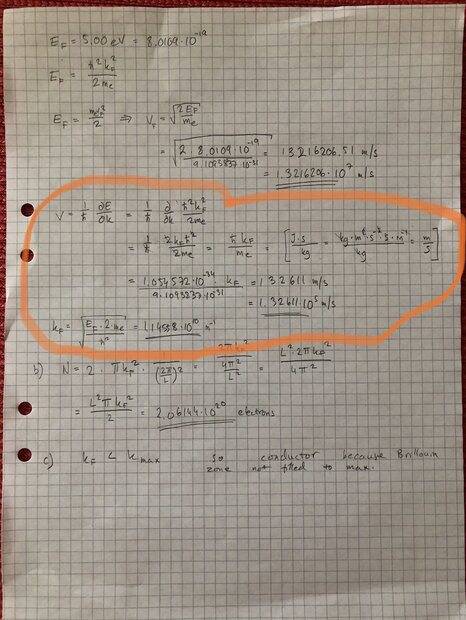 E_F = 5.00 eV = 8.0109·10^-19
E_F = ħ²k_F² / 2m_e
E_F = m_e v_F² / 2 ⇒ V_F = √(2E_F / m_e)
= √(2 · 8.0109·10^-19 / 9.1093837·10^-31) = 13216206.51 m/s
= 1.3216206·10^7 m/s
V = 1/ħ ∂E/∂k = 1/ħ ∂/∂k ħ²k_F² / 2m_e
= 1/ħ 2k_F ħ² / 2m_e = ħ k_F / m_e = [J·s / kg = kg·m²·s^-2·s·m^-1 / kg = m/s]
= 1.054572·10^-34 · k_F / 9.1093837·10^-31 = 1.32611 m/s
= 1.32611·10^5 m/s
k_F = √(E_F · 2 · m_e / ħ²) = 1.14558·10^10 m^-1
b) N = 2 · πk_F² · 1 / (2π/L)² = 2πk_F² / (4π²/L²) = L²·2πk_F² / 4π²
= L²πk_F² / 2 = 2.06144·10^20 electrons
c) k_F < k_max so conductor because Brillouin
zone not filled to max.